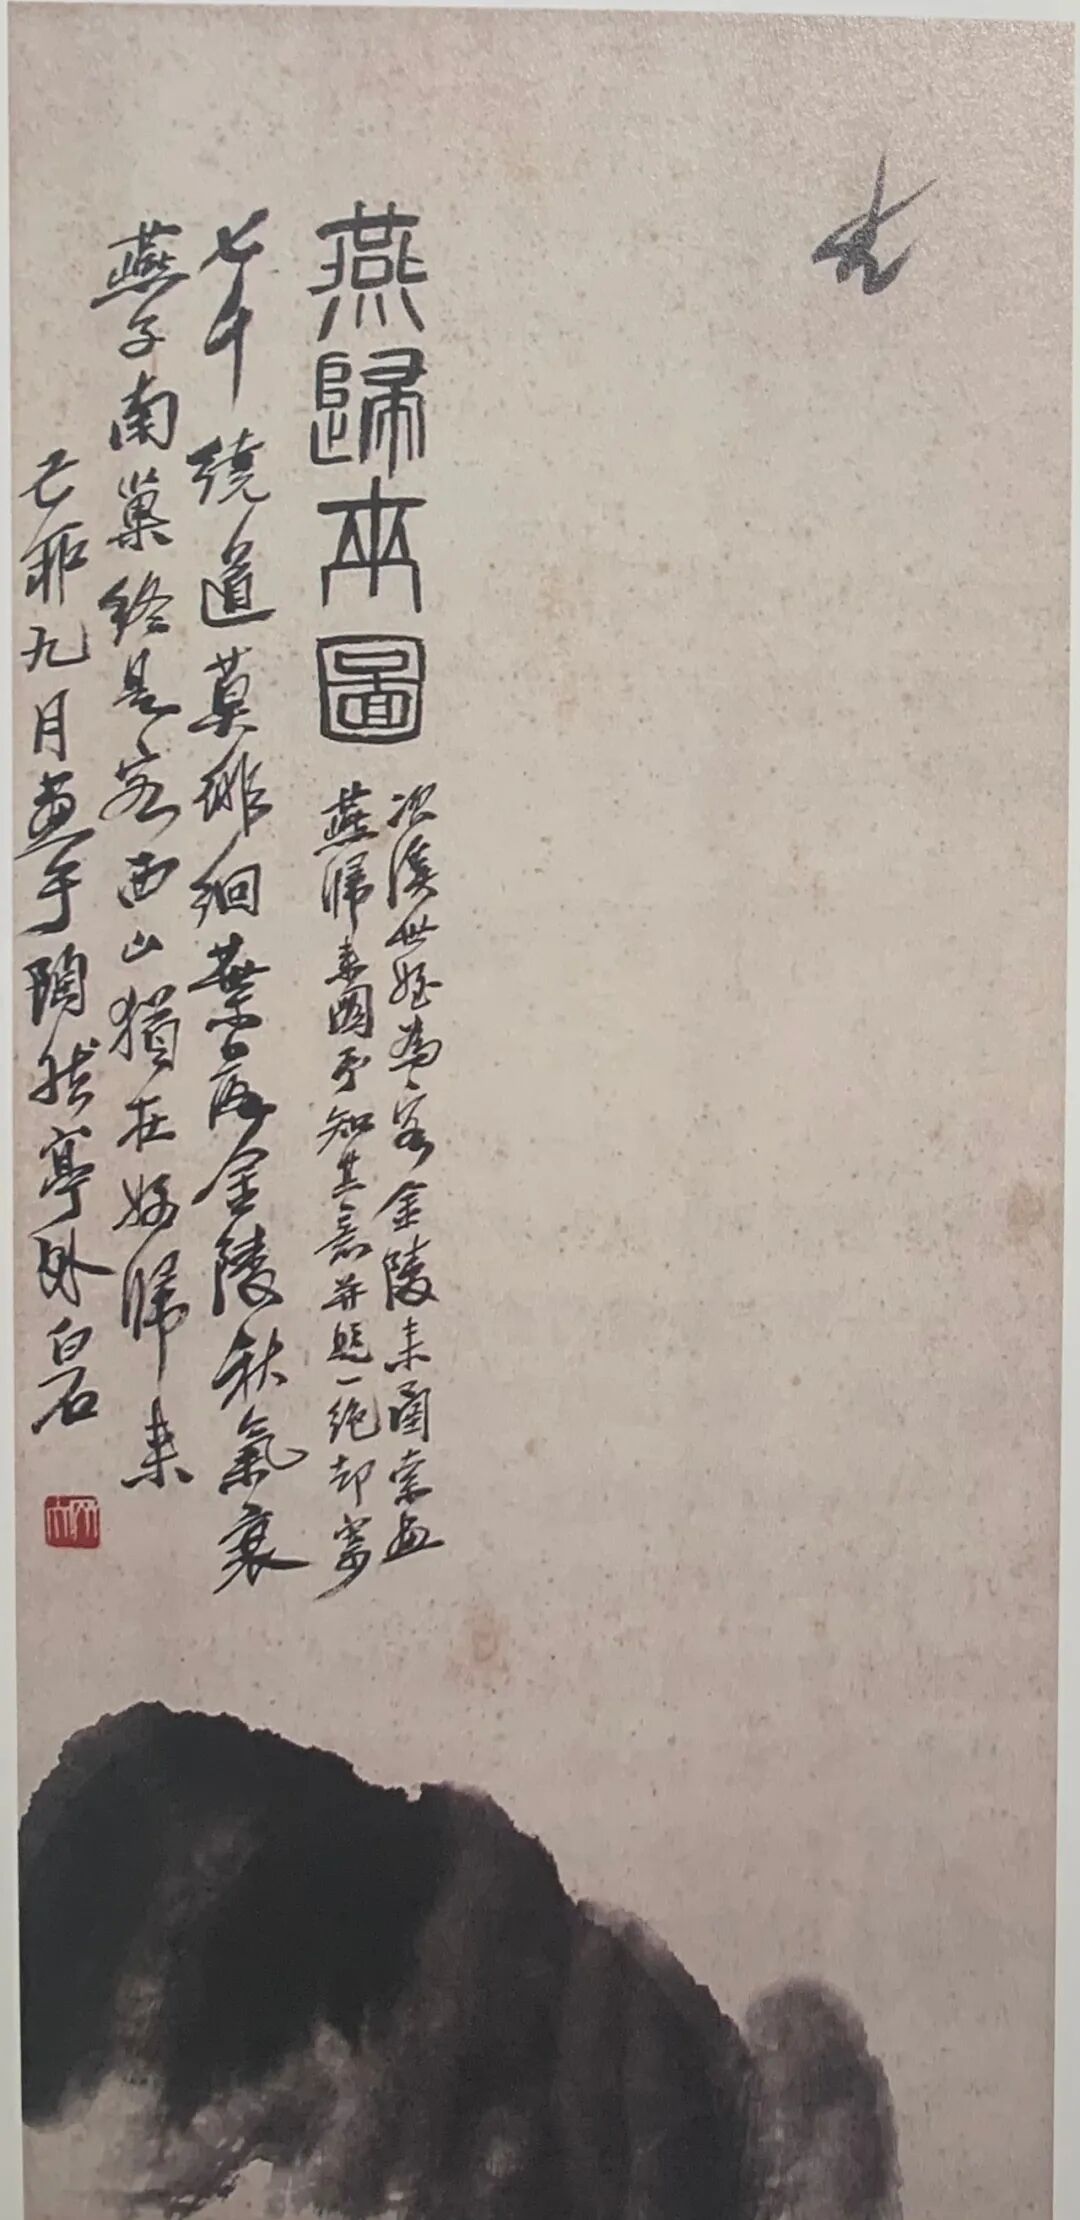 燕歸來圖
次溪世姪為客金陵来函索畫
燕歸来圖予知其意并題一絕却寄
七千繞道莫徘徊葉落金陵秋氣衰
燕子南巢終是客西山猶在好歸来
九月畫于陶然亭外白石